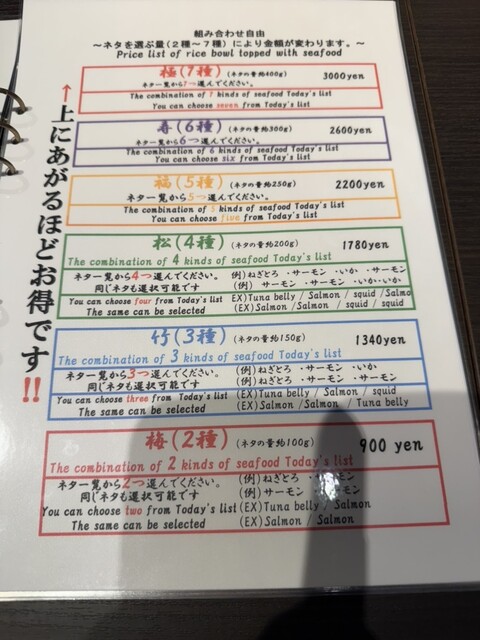 組み合わせ自由
～ネタを選ぶ量(2種～7種)により金額が変わります。～
Price list of rice bowl topped with seafood
↑上にあがるほどお得です!!
極(7種) (ネタの量約400g) 3000yen
ネタ一覧から7つ選んでください。
The combination of 7 kinds of seafood Today's list
You can choose seven from Today's list
寿(6種) (ネタの量約300g) 2600yen
ネタ一覧から6つ選んでください。
The combination of 6 kinds of seafood Today's list
You can choose six from Today's list
福(5種) (ネタの量約250g) 2200yen
ネタ一覧から5つ選んでください。
The combination of 5 kinds of seafood Today's list
You can choose five from Today's list
松(4種) (ネタの量約200g) 1780yen
The combination of 4 kinds of seafood Today's list
ネタ一覧から4つ選んでください。 (例)ねぎとろ ・サーモン ・いか ・サーモン
同じネタも選択可能です (例) サーモン ・サーモン ・いか・いか
You can choose four from Today's list (EX)Tuna belly / Salmon / squid /Salmo
The same can be selected (EX)Salmon / Salmon / squid / squid
竹(3種) (ネタの量約150g) 1340yen
The combination of 3 kinds of seafood Today's list
ネタ一覧から3つ選んでください。 (例)ねぎとろ ・サーモン ・いか
同じネタも選択可能です (例)ねぎとろ ・サーモン ・サーモン
You can choose three from Today's list (EX)Tuna belly / Salmon / squid
The same can be selected (EX)Salmon /Salmon / Tuna belly
梅(2種) (ネタの量約100g) 900 yen
The combination of 2 kinds of seafood Today's list
ネタ一覧から2つ選んでください。 (例)ねぎとろ ・サーモン
同じネタも選択可能です (例)サーモン ・サーモン
You can choose two from Today's list (EX)Tuna belly / Salmon
The same can be selected (EX)Salmon / Salmon